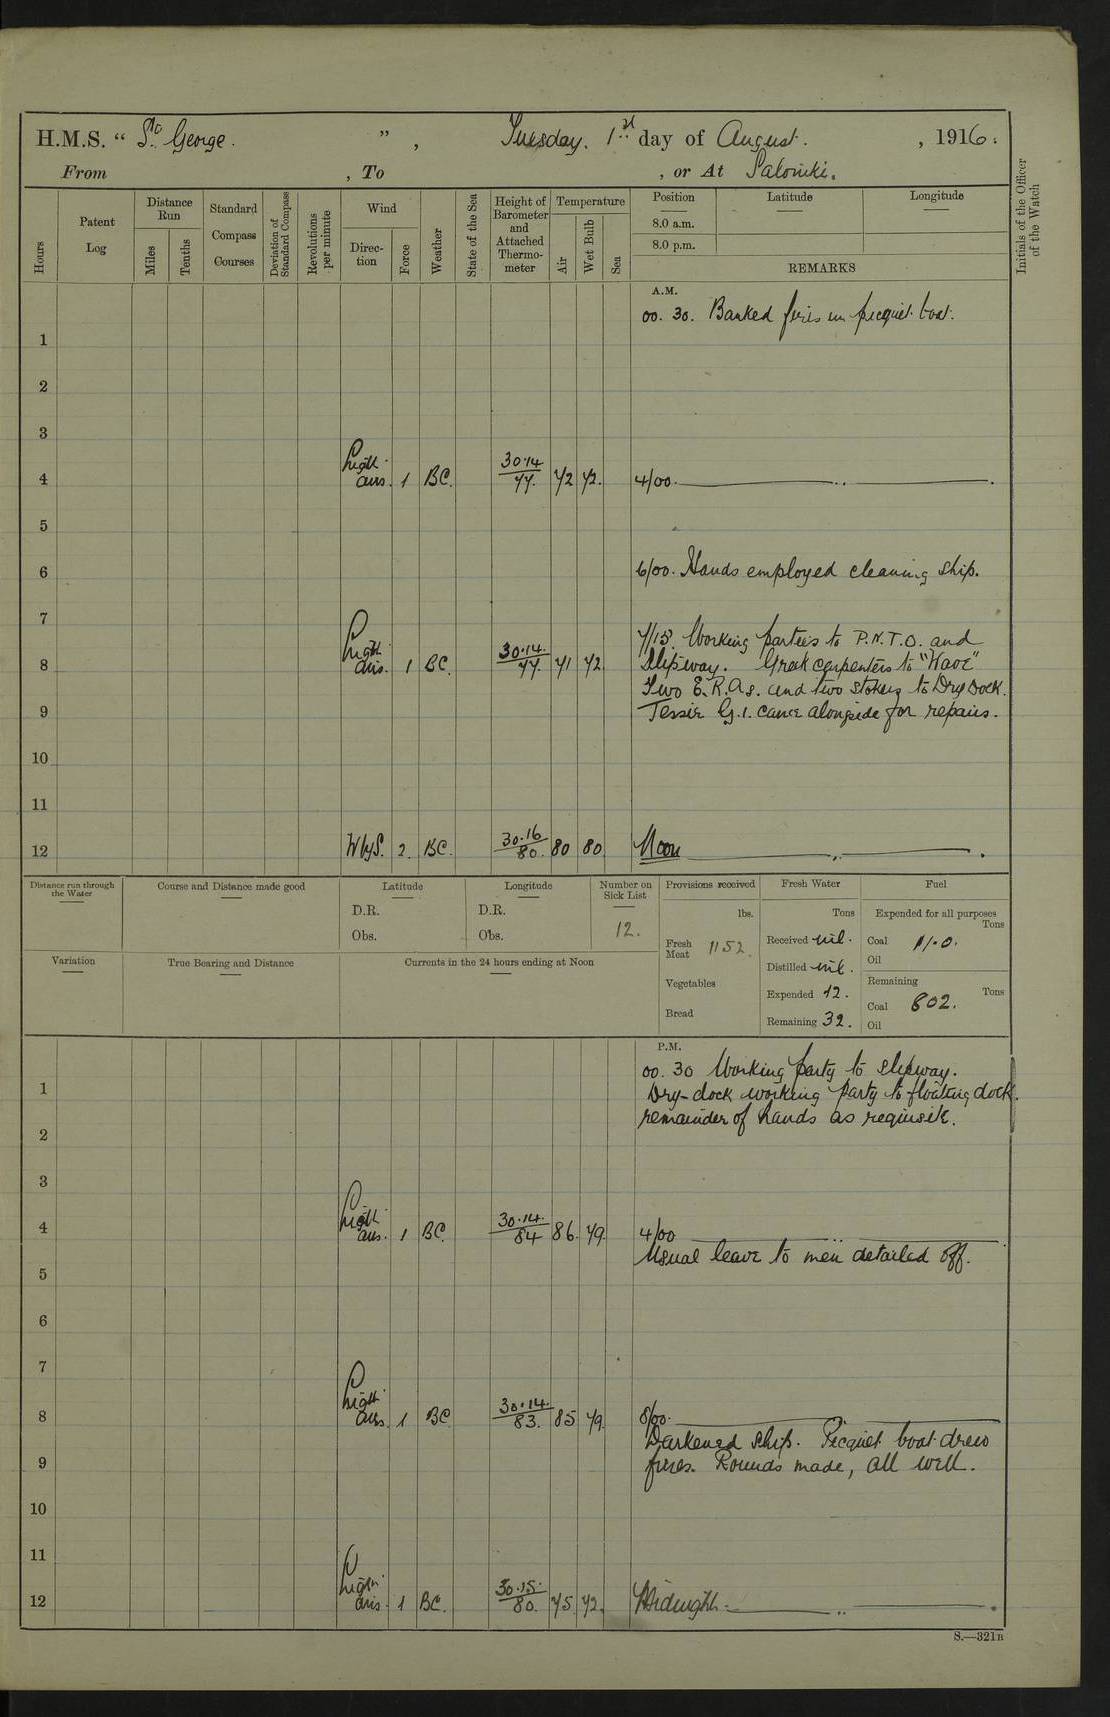 H.M.S. “ St George. ” , Tuesday. 1st day of August. , 1916.
From , To , or At Saloniki.
Hours
Patent Log
Distance Run
Miles
Tenths
Standard Compass Courses
Deviation of Standard Compass
Revolutions per minute
Wind
Direction
Force
Weather
State of the Sea
Height of Barometer and Attached Thermometer
Temperature
Air
Wet Bulb
Sea
Position
8.0 a.m.
8.0 p.m.
Latitude
Longitude
REMARKS
Initials of the Officer of the Watch
A.M.
00.30. Banked fires in picquet boat.
1
2
3
4 Light airs. 1 BC. 30.14 77. 72 72. 4/00.
5
6 6/00. Hands employed cleaning ship.
7
7/15. Working parties to P.N.T.O. and
8 Light airs. 1 BC. 30.14. 77. 71 72 Slipway. Greek carpenters to "Wave"
Two E.R.As. and two stokers to Dry Dock.
9 G.1. came alongside for repairs.
10
11
12 W by S. 2. BC. 30.16 80. 80 80 Noon
Distance run through the Water
Course and Distance made good
Latitude
D.R.
Obs.
Longitude
D.R.
Obs.
Number on Sick List
12.
Provisions received
lbs.
Fresh Meat 1152.
Vegetables
Bread
Fresh Water
Tons
Received nil.
Distilled nil.
Expended 12.
Remaining 32.
Fuel
Expended for all purposes
Tons
Coal
Oil
Remaining
Tons
Coal 802.
Oil
Variation
True Bearing and Distance
Currents in the 24 hours ending at Noon
P.M.
00.30 Working party to slipway.
1 Dry-dock working party to floating dock.
remainder of hands as requisite.
2
3
4 Light airs. 1 BC. 30.14. 84 86. 79 4/00
Usual leave to men detailed off.
5
6
7
8 Light airs. 1 BC 30.14. 83. 85 79 8/00.
Darkened ship. Picquet boat drew
9 fires. Rounds made, all well.
10
11
12 Light airs. 1 BC. 30.15. 80. 75 72. Midnight.
S.—321B